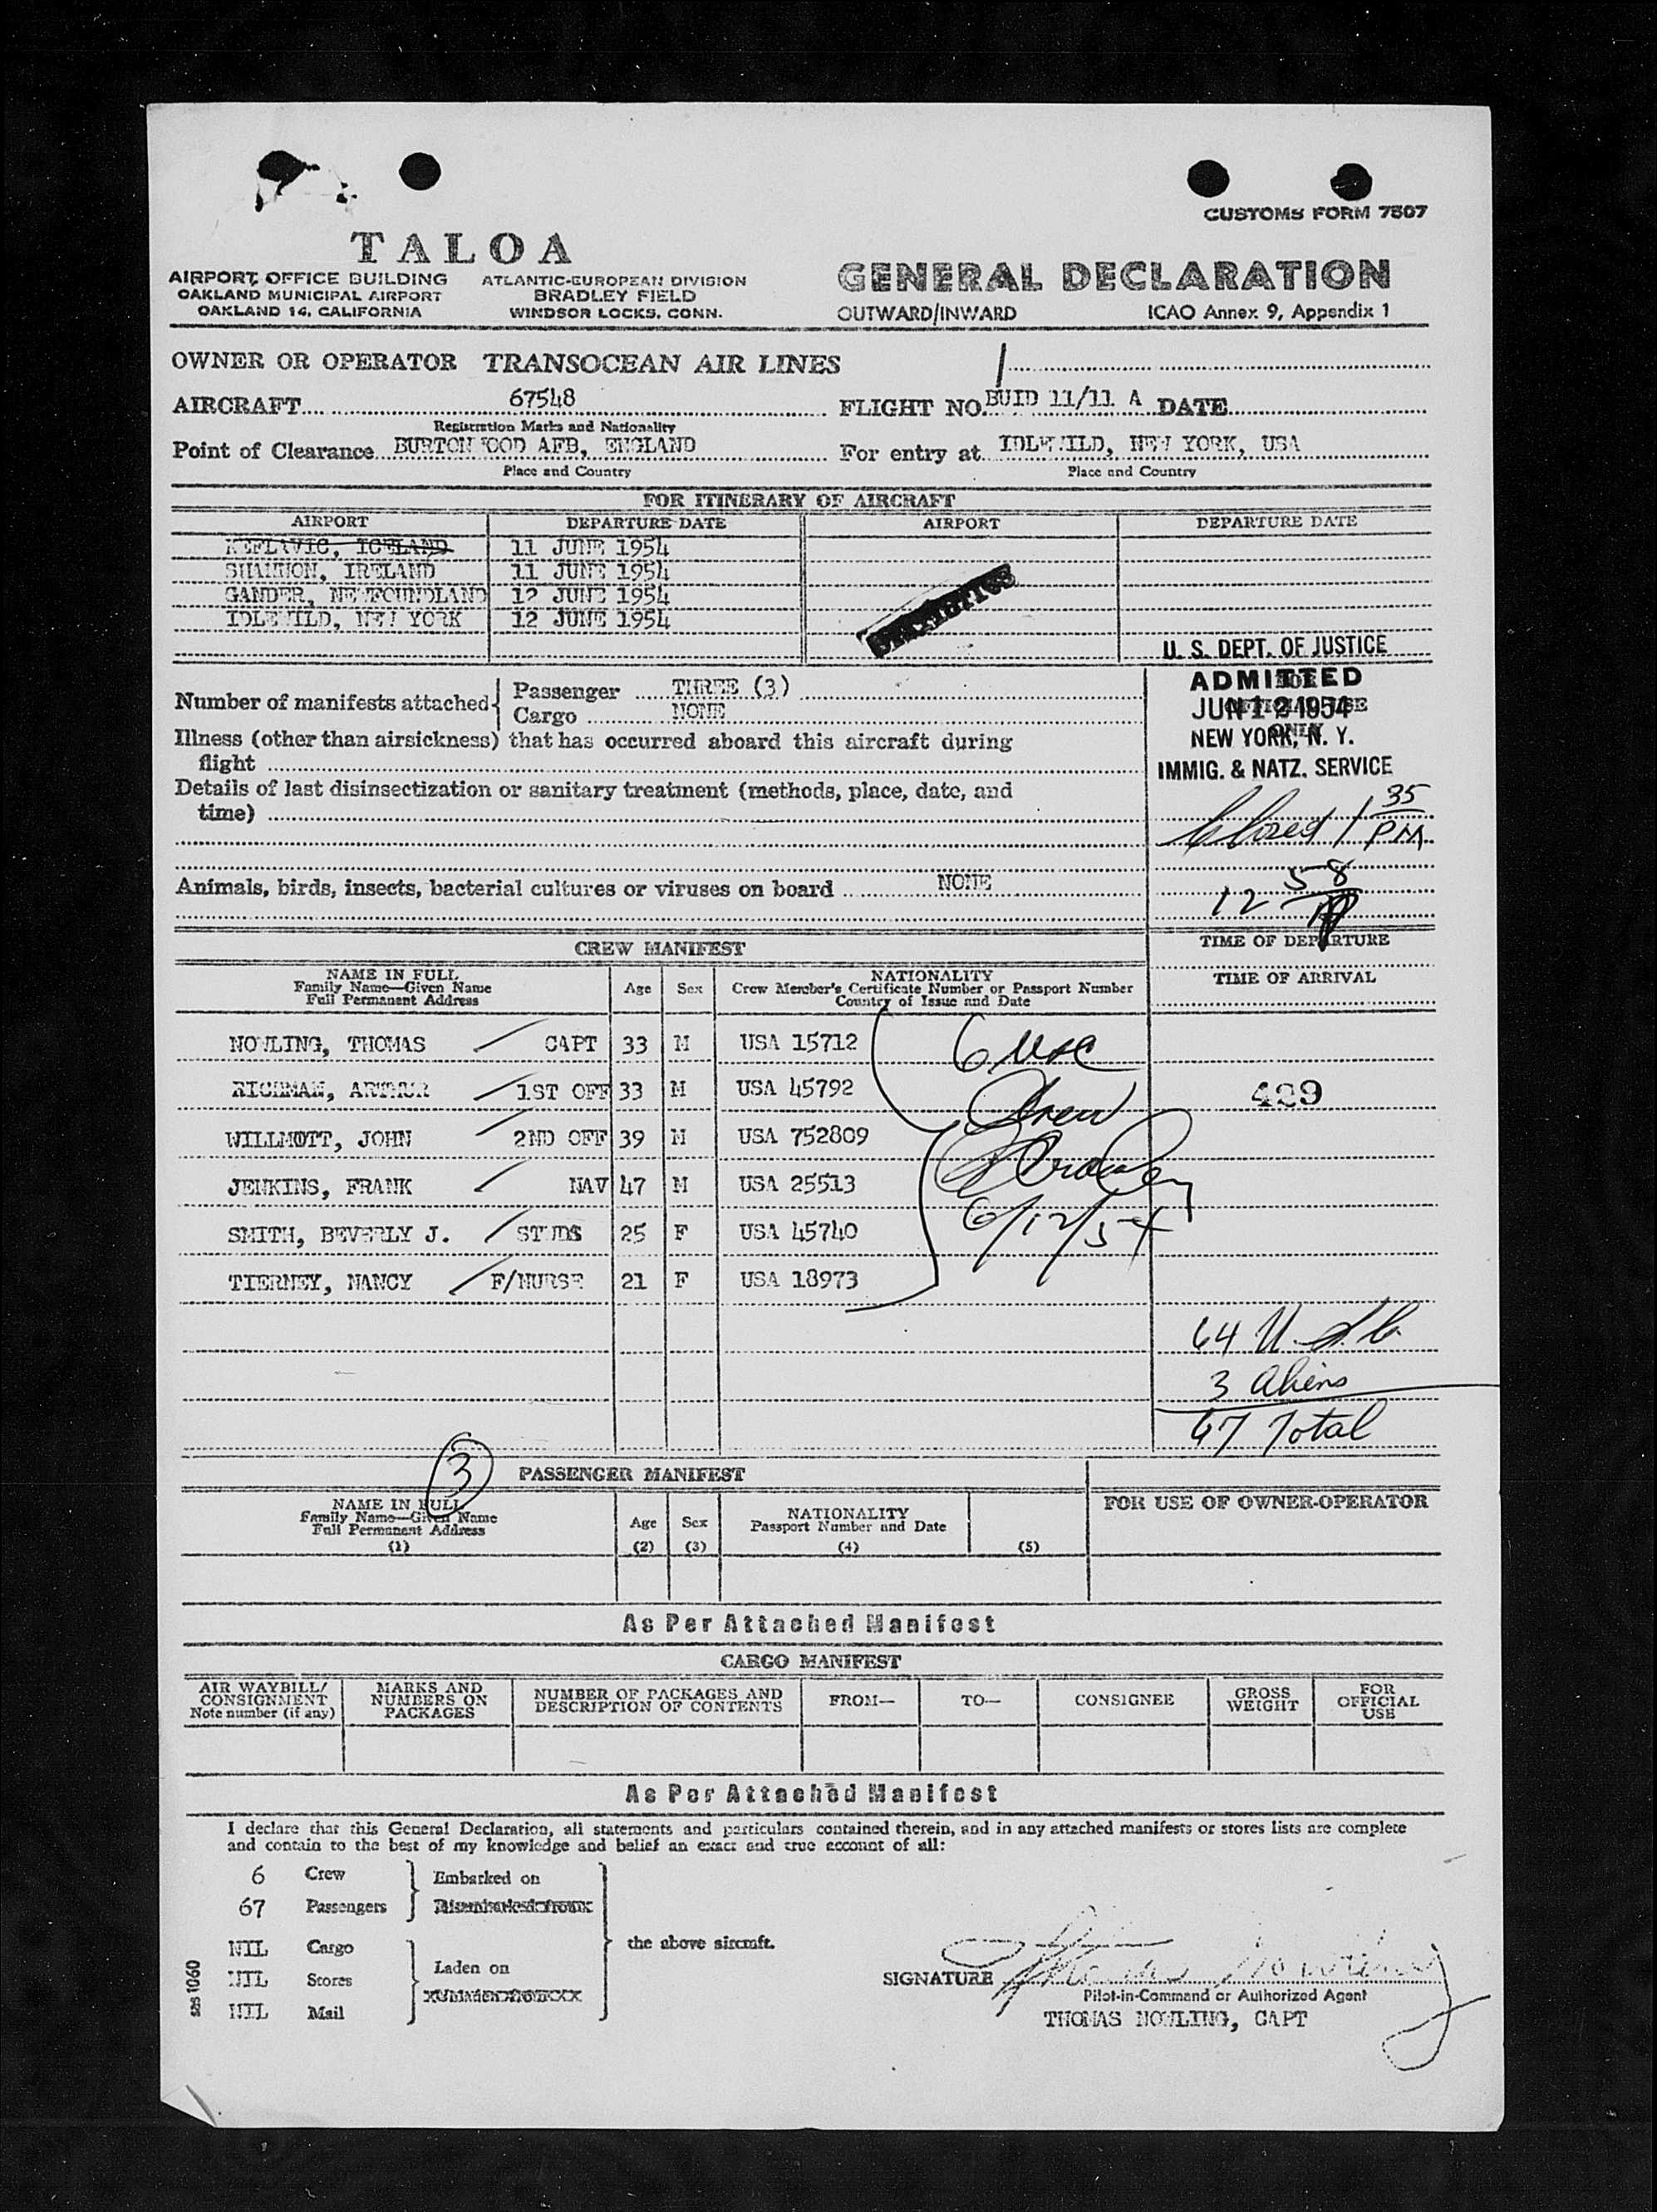 CUSTOMS FORM 7507
TALOA
AIRPORT OFFICE BUILDING
OAKLAND MUNICIPAL AIRPORT
OAKLAND 14, CALIFORNIA
ATLANTIC-EUROPEAN DIVISION
BRADLEY FIELD
WINDSOR LOCKS, CONN.
GENERAL DECLARATION
OUTWARD/INWARD ICAO Annex 9, Appendix 1
OWNER OR OPERATOR TRANSOCEAN AIR LINES
AIRCRAFT 67548 FLIGHT NO. BUID 11/11 A DATE
Registration Marks and Nationality
Point of Clearance BURTONWOOD AFB, ENGLAND For entry at IDLEWILD, NEW YORK, USA
Place and Country Place and Country
FOR ITINERARY OF AIRCRAFT
AIRPORT DEPARTURE DATE AIRPORT DEPARTURE DATE
KEFLAVIC, ICELAND 11 JUNE 1954
SHANNON, IRELAND 11 JUNE 1954
GANDER, NEWFOUNDLAND 12 JUNE 1954
IDLEWILD, NEW YORK 12 JUNE 1954
STATISTICS
U. S. DEPT. OF JUSTICE
ADMITTED
JUN 12 1954
NEW YORK, N. Y.
IMMIG. & NATZ. SERVICE
Number of manifests attached Passenger THREE (3)
Cargo NONE
Illness (other than airsickness) that has occurred aboard this aircraft during
flight
Details of last disinsectization or sanitary treatment (methods, place, date, and
time)
Closed 1 35 PM
Animals, birds, insects, bacterial cultures or viruses on board NONE
12 58
TIME OF DEPARTURE
TIME OF ARRIVAL
CREW MANIFEST
NAME IN FULL
Family Name—Given Name
Full Permanent Address
Age Sex
NATIONALITY
Crew Member's Certificate Number or Passport Number
Country of Issue and Date
NOWLING, THOMAS CAPT 33 M USA 15712
RICHMAN, ARTHUR 1ST OFF 33 M USA 45792
WILLMOTT, JOHN 2ND OFF 39 M USA 752809
JENKINS, FRANK NAV 47 M USA 25513
SMITH, BEVERLY J. STUDS 25 F USA 45740
TIERNEY, NANCY F/NURSE 21 F USA 18973
6 USC
Crew
6/12/54
429
64 U.S.C.
3 Aliens
67 Total
3
PASSENGER MANIFEST
NAME IN FULL
Family Name—Given Name
Full Permanent Address
(1)
Age
(2)
Sex
(3)
NATIONALITY
Passport Number and Date
(4) (5)
FOR USE OF OWNER-OPERATOR
As Per Attached Manifest
CARGO MANIFEST
AIR WAYBILL/
CONSIGNMENT
Note number (if any)
MARKS AND
NUMBERS ON
PACKAGES
NUMBER OF PACKAGES AND
DESCRIPTION OF CONTENTS
FROM— TO— CONSIGNEE
GROSS
WEIGHT
FOR
OFFICIAL
USE
As Per Attached Manifest
I declare that this General Declaration, all statements and particulars contained therein, and in any attached manifests or stores lists are complete
and contain to the best of my knowledge and belief an exact and true account of all:
6 Crew Embarked on
67 Passengers
NIL Cargo the above aircraft.
NIL Stores Laden on
NIL Mail
sas 1060
SIGNATURE Thomas Nowling
Pilot-in-Command or Authorized Agent
THOMAS NOWLING, CAPT